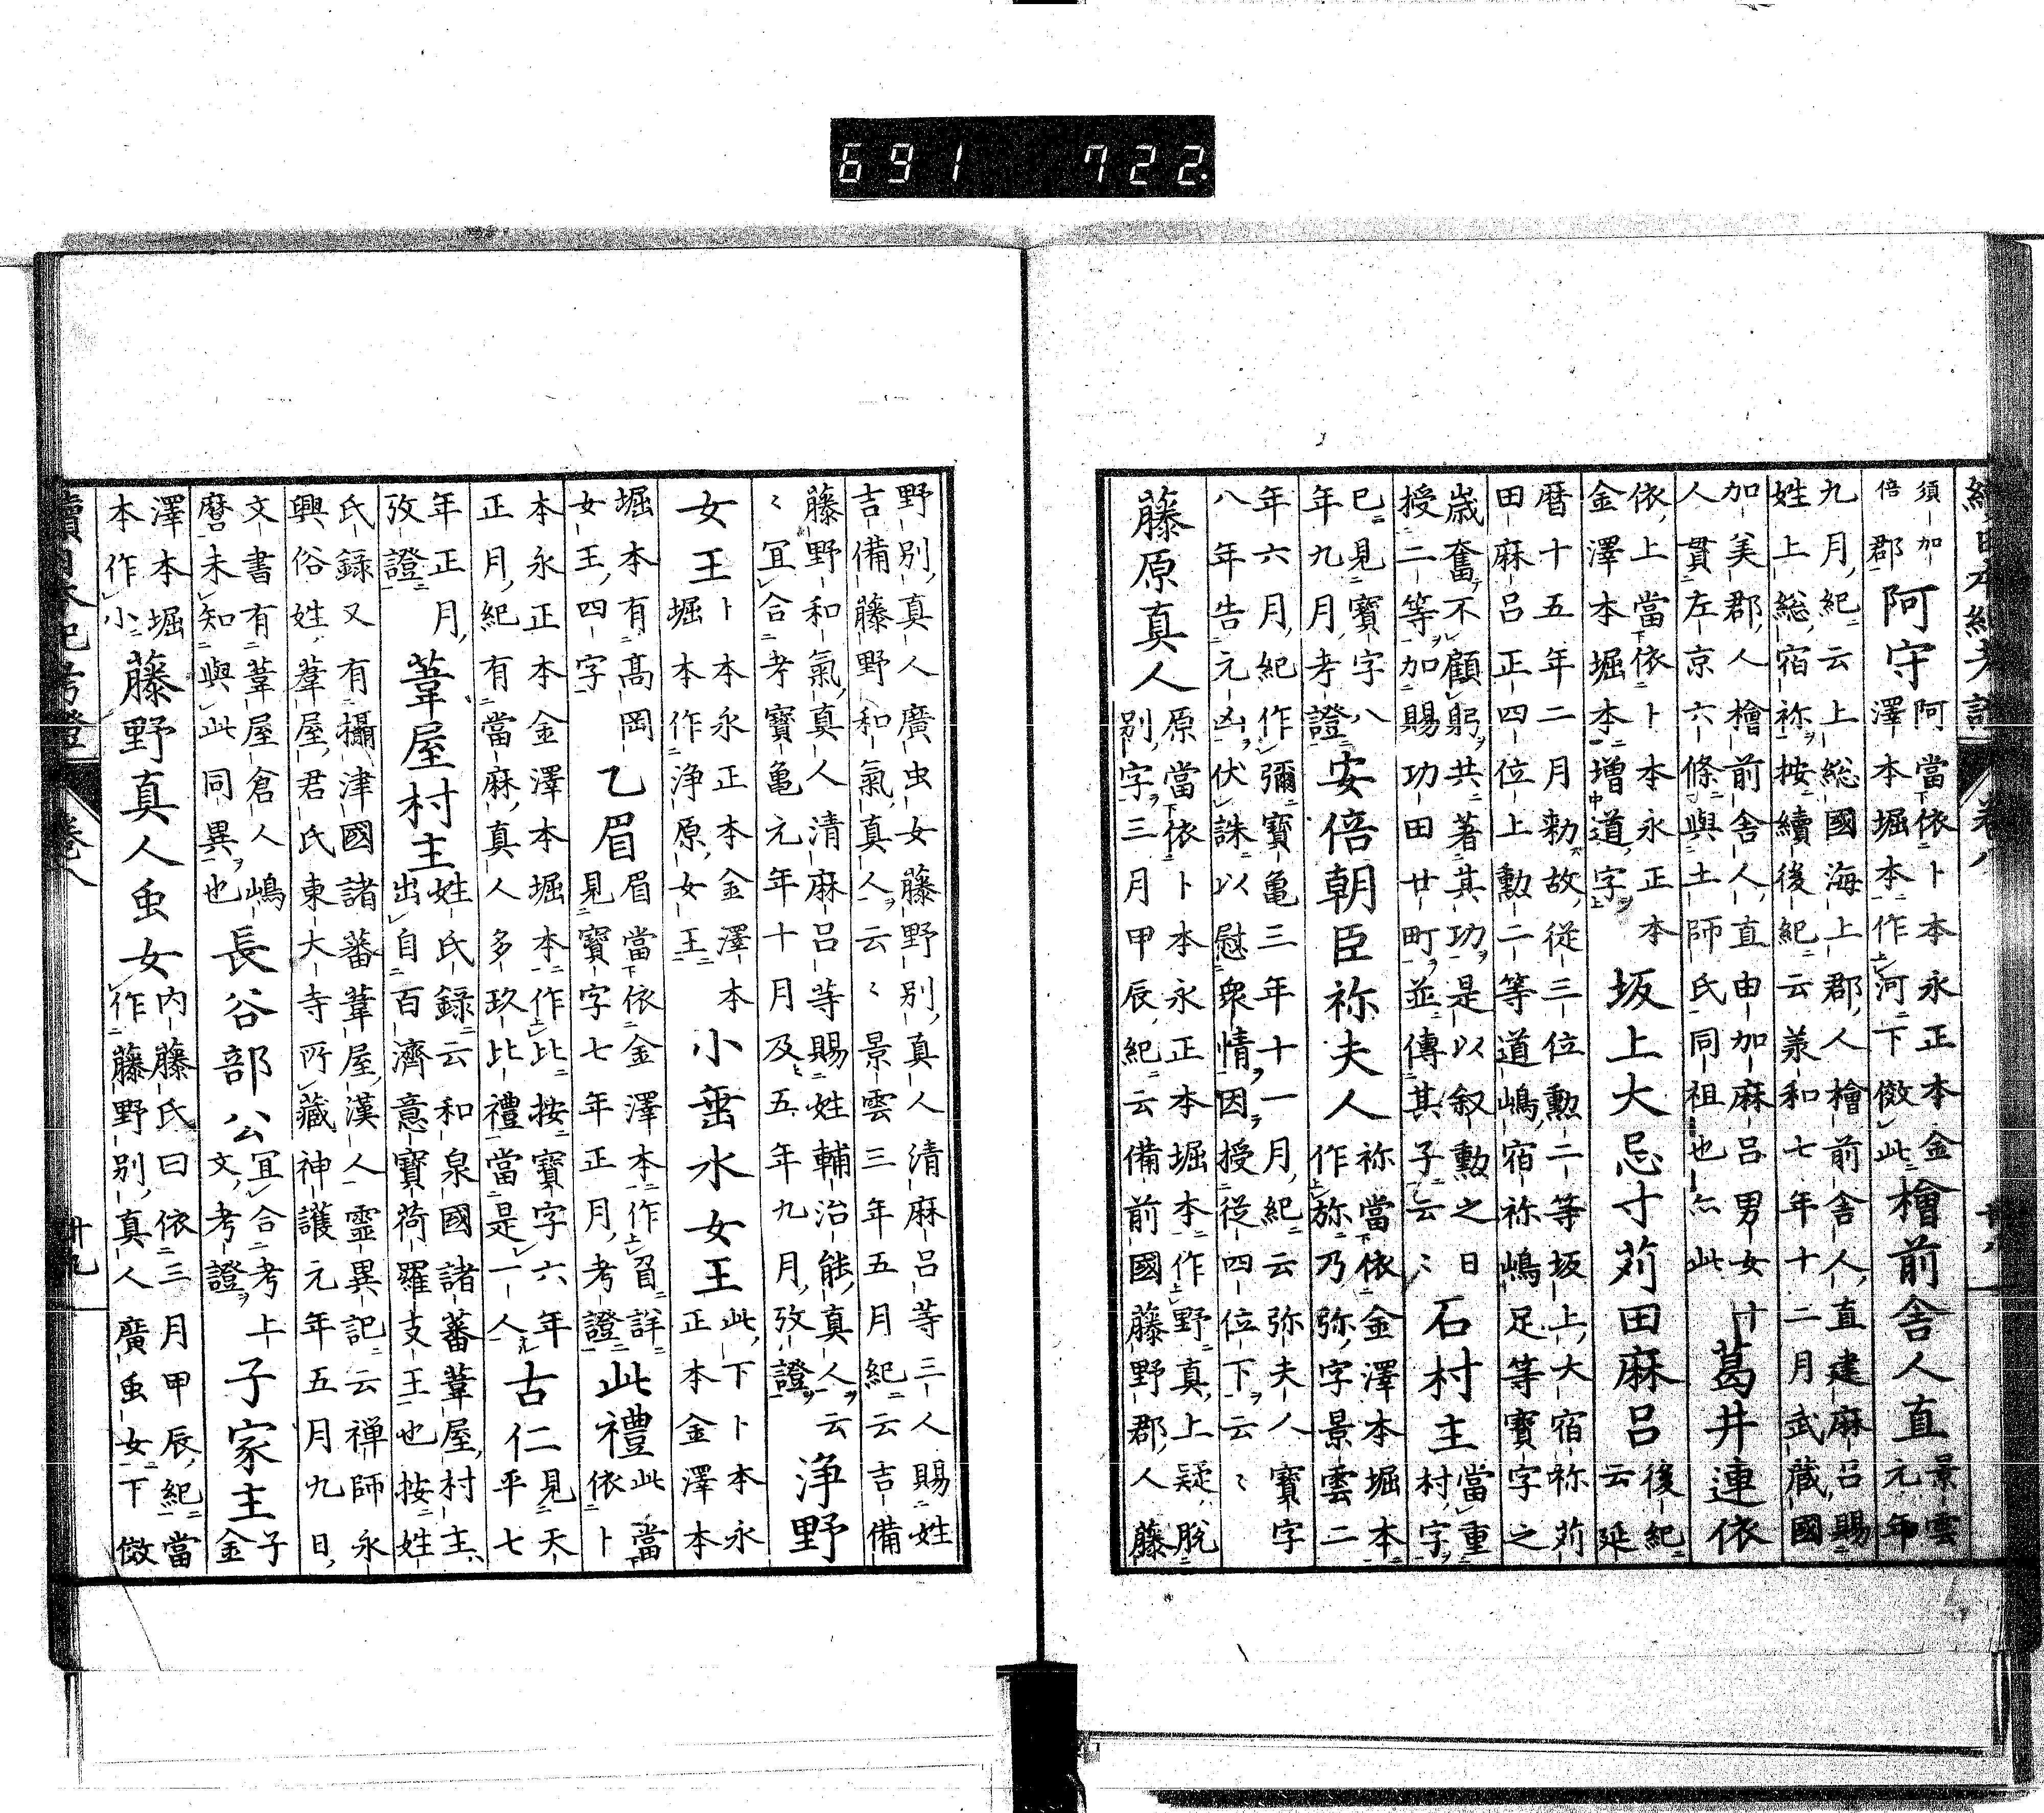 691 722.
續日本紀考證 卷八 廿八
須加
倍郡
阿守
阿當依卜本永正本金
澤本堀本作河下傚此
檜前舍人直
景雲
元年
九月紀云上総國海上郡人檜前舍人直建麻呂賜
姓上総宿祢按續後紀云羕和七年十二月武藏國
加美郡人檜前舍人直由加麻呂男女十
人貫左京六條與土師氏同祖也亦此
葛井連依
依上當依卜本永正本
金澤本堀本增道字
坂上大忌寸苅田麻呂
後紀
云延
暦十五年二月勅故從三位勲二等坂上大宿祢苅
田麻呂正四位上勲二等道嶋宿祢嶋足等寶字之
歳奮不顧躬共著其功是以叙勲之日
授二等加賜功田廿町並傳其子云〻
石村主
當重
村字
已見寶字八
年九月考證
安倍朝臣祢夫人
祢當依金澤本堀本
作旀乃弥字景雲二
年六月紀作彌寶亀三年十一月紀云弥夫人寶字
八年告元凶伏誅以慰衆情因授從四位下云〻
藤原真人
原當依卜本永正本堀本作野真上疑脱
別字三月甲辰紀云備前國藤野郡人藤
野別真人廣虫女藤野別真人清麻呂等三人賜姓
吉備藤野和氣真人云〻景雲三年五月紀云吉備
藤野和氣真人清麻呂等賜姓輔治能真人云
〻冝合考寶亀元年十月及五年九月攷證
浄野
女王
卜本永正本金澤本
堀本作浄原女王
小𡍮水女王
此下卜本永
正本金澤本
堀本有髙岡
女王四字
乙眉
眉當依金澤本作詳
見寶字七年正月考證
此禮
此當
依卜
本永正本金澤本堀本作比按寶字六年
正月紀有當麻真人多玖比禮當是一人
古仁
見天
平七
年正月
攷證
葦屋村主
姓氏録云和泉國諸蕃葦屋村主
出自百濟意寶荷羅支王也按姓
氏録又有攝津國諸蕃葦屋漢人靈異記云禅師永
興俗姓葦屋君氏東大寺所藏神護元年五月九日
文書有葦屋倉人嶋
麿未知與此同異也
長谷部公
冝合考上
文考證
子家主
子
金
澤本堀
本作小
藤野真人虫女
內藤氏曰依三月甲辰紀當
作藤野別真人廣虫女下傚
續日本紀考證 卷八 廿九